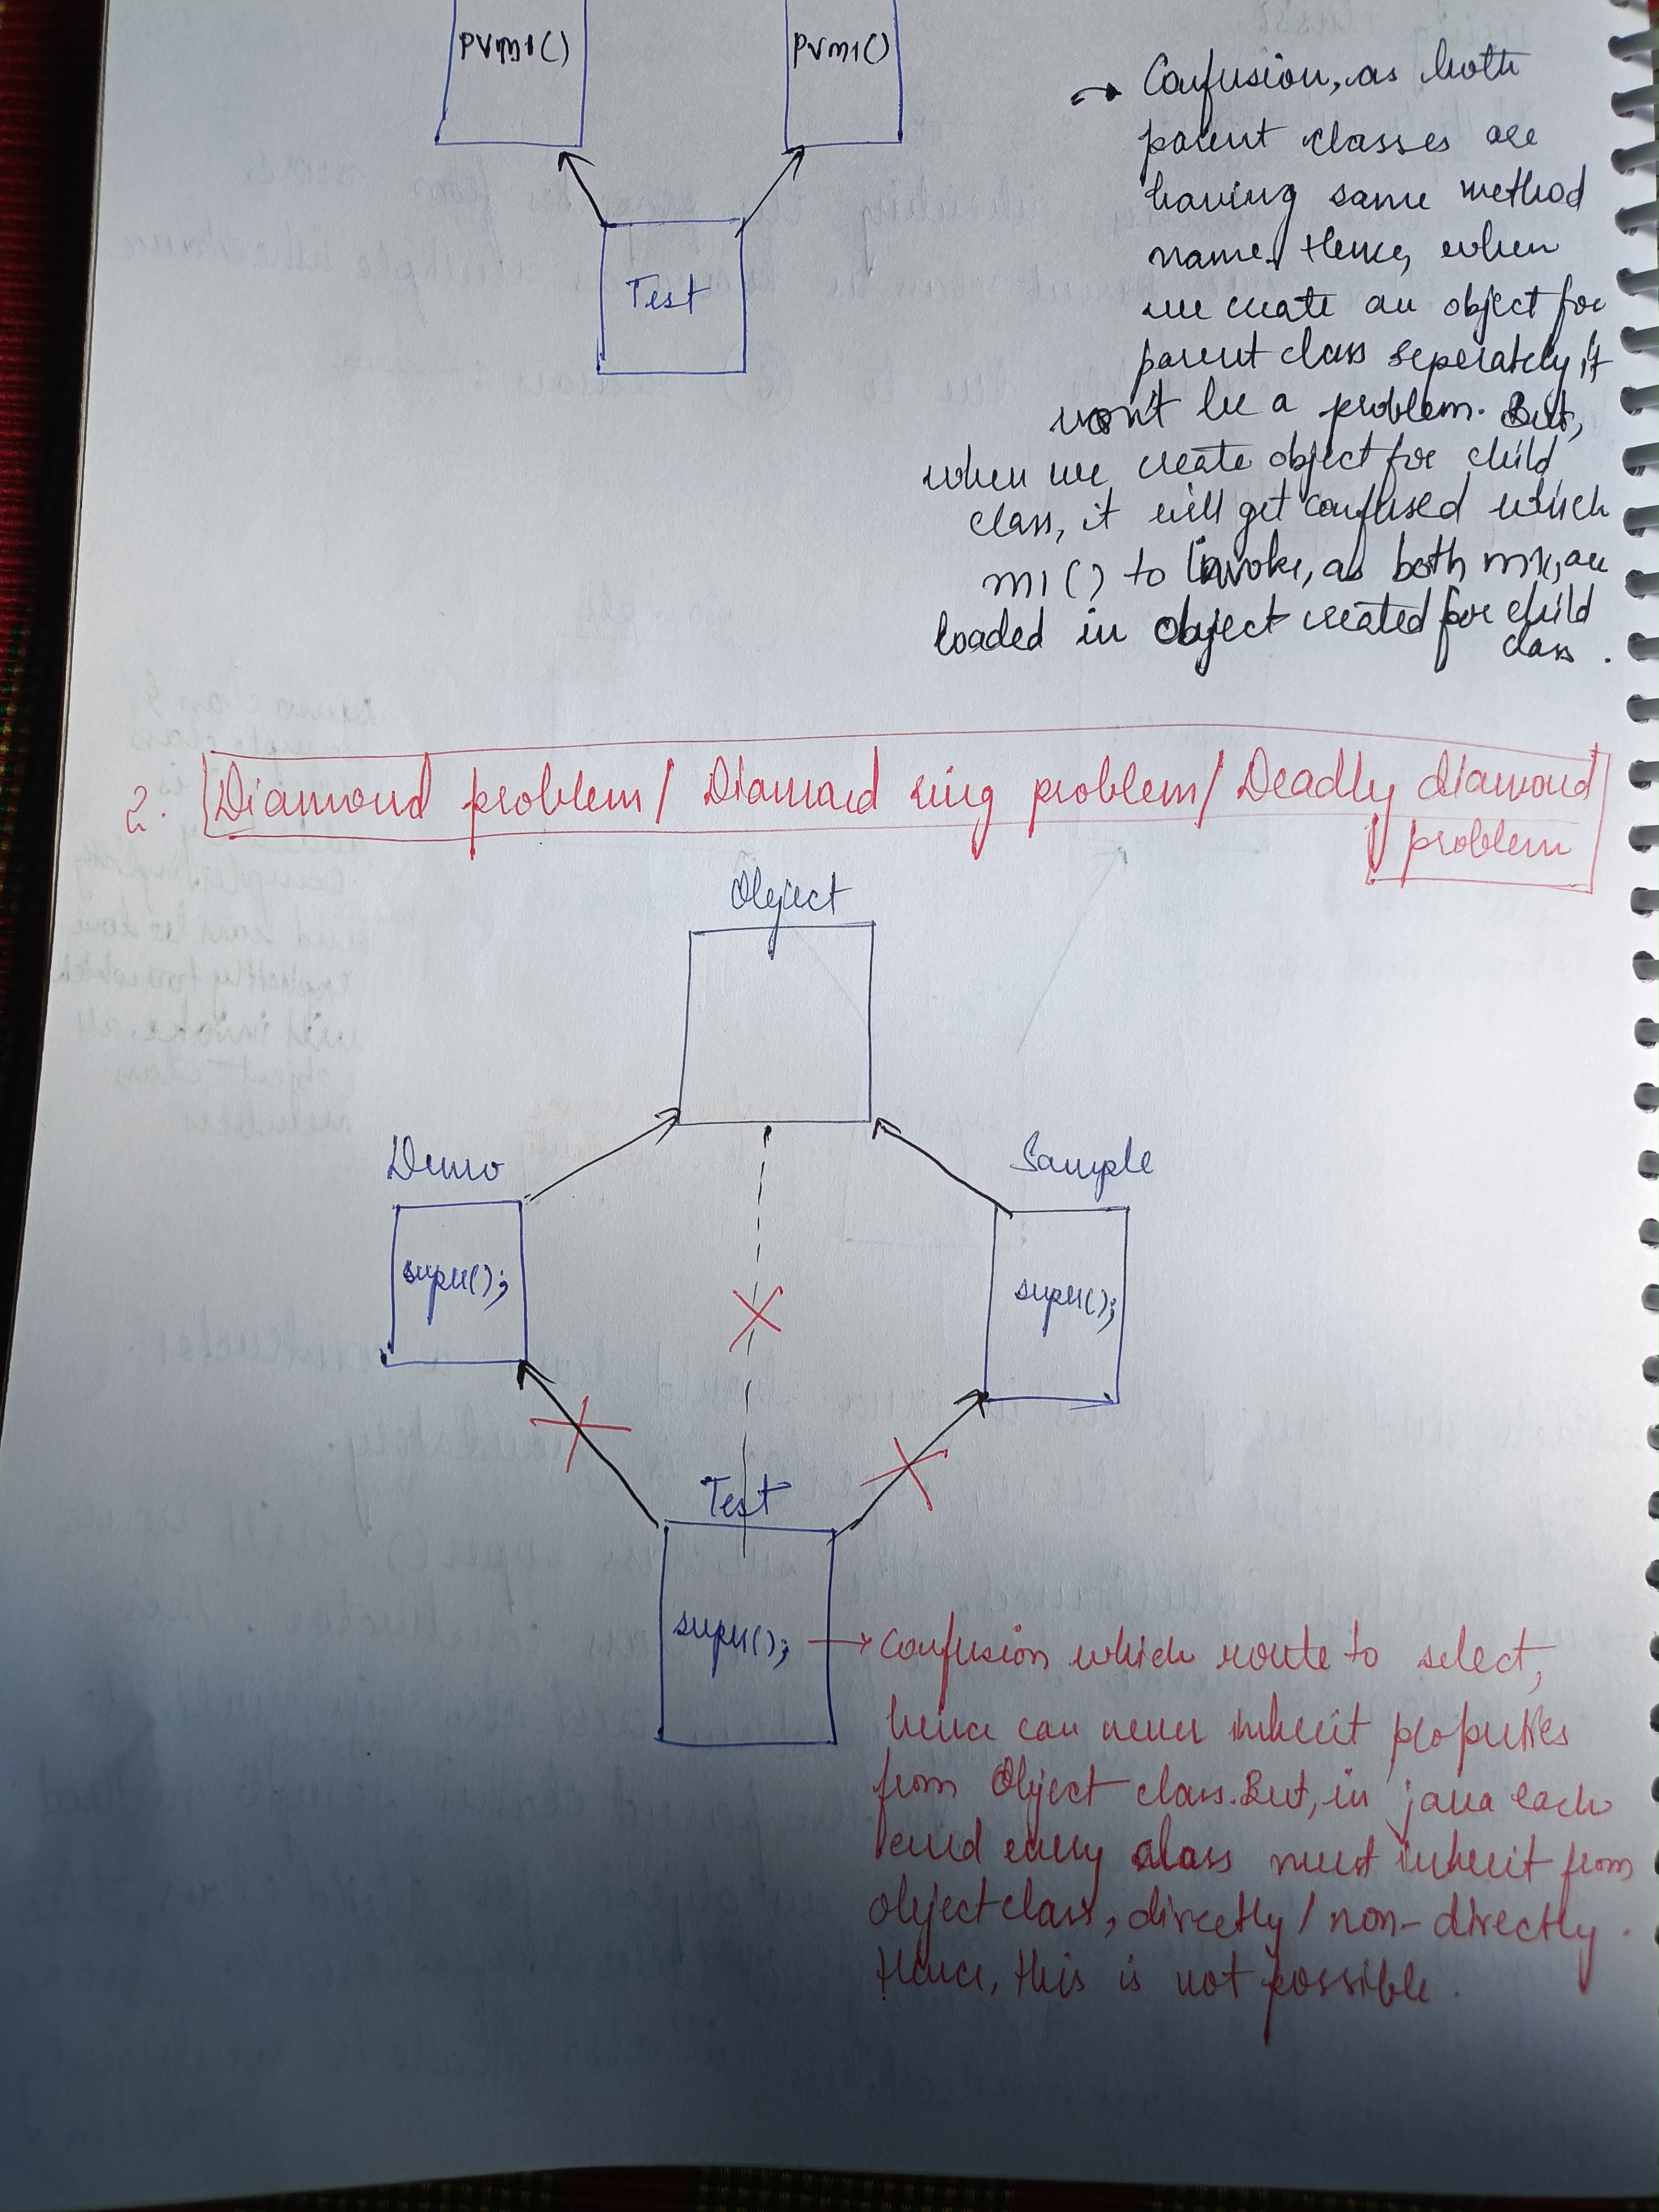 PVM1()
PVM1()
Test
Confusion, as both
parent classes are
having same method
name. Hence, when
we create an object for
parent class seperately, it
won't be a problem. But,
when we create object for child
class, it will get confused which
m1() to invoke, as both m1() are
loaded in object created for child
class.
2. Diamond problem/ Diamond ring problem/ Deadly diamond
problem
Object
Demo
Sample
super();
super();
Test
super();
Confusion which route to select,
hence can never inherit properties
from Object class. But, in java each
and every class must inherit from
object class, directly / non-directly.
Hence, this is not possible.